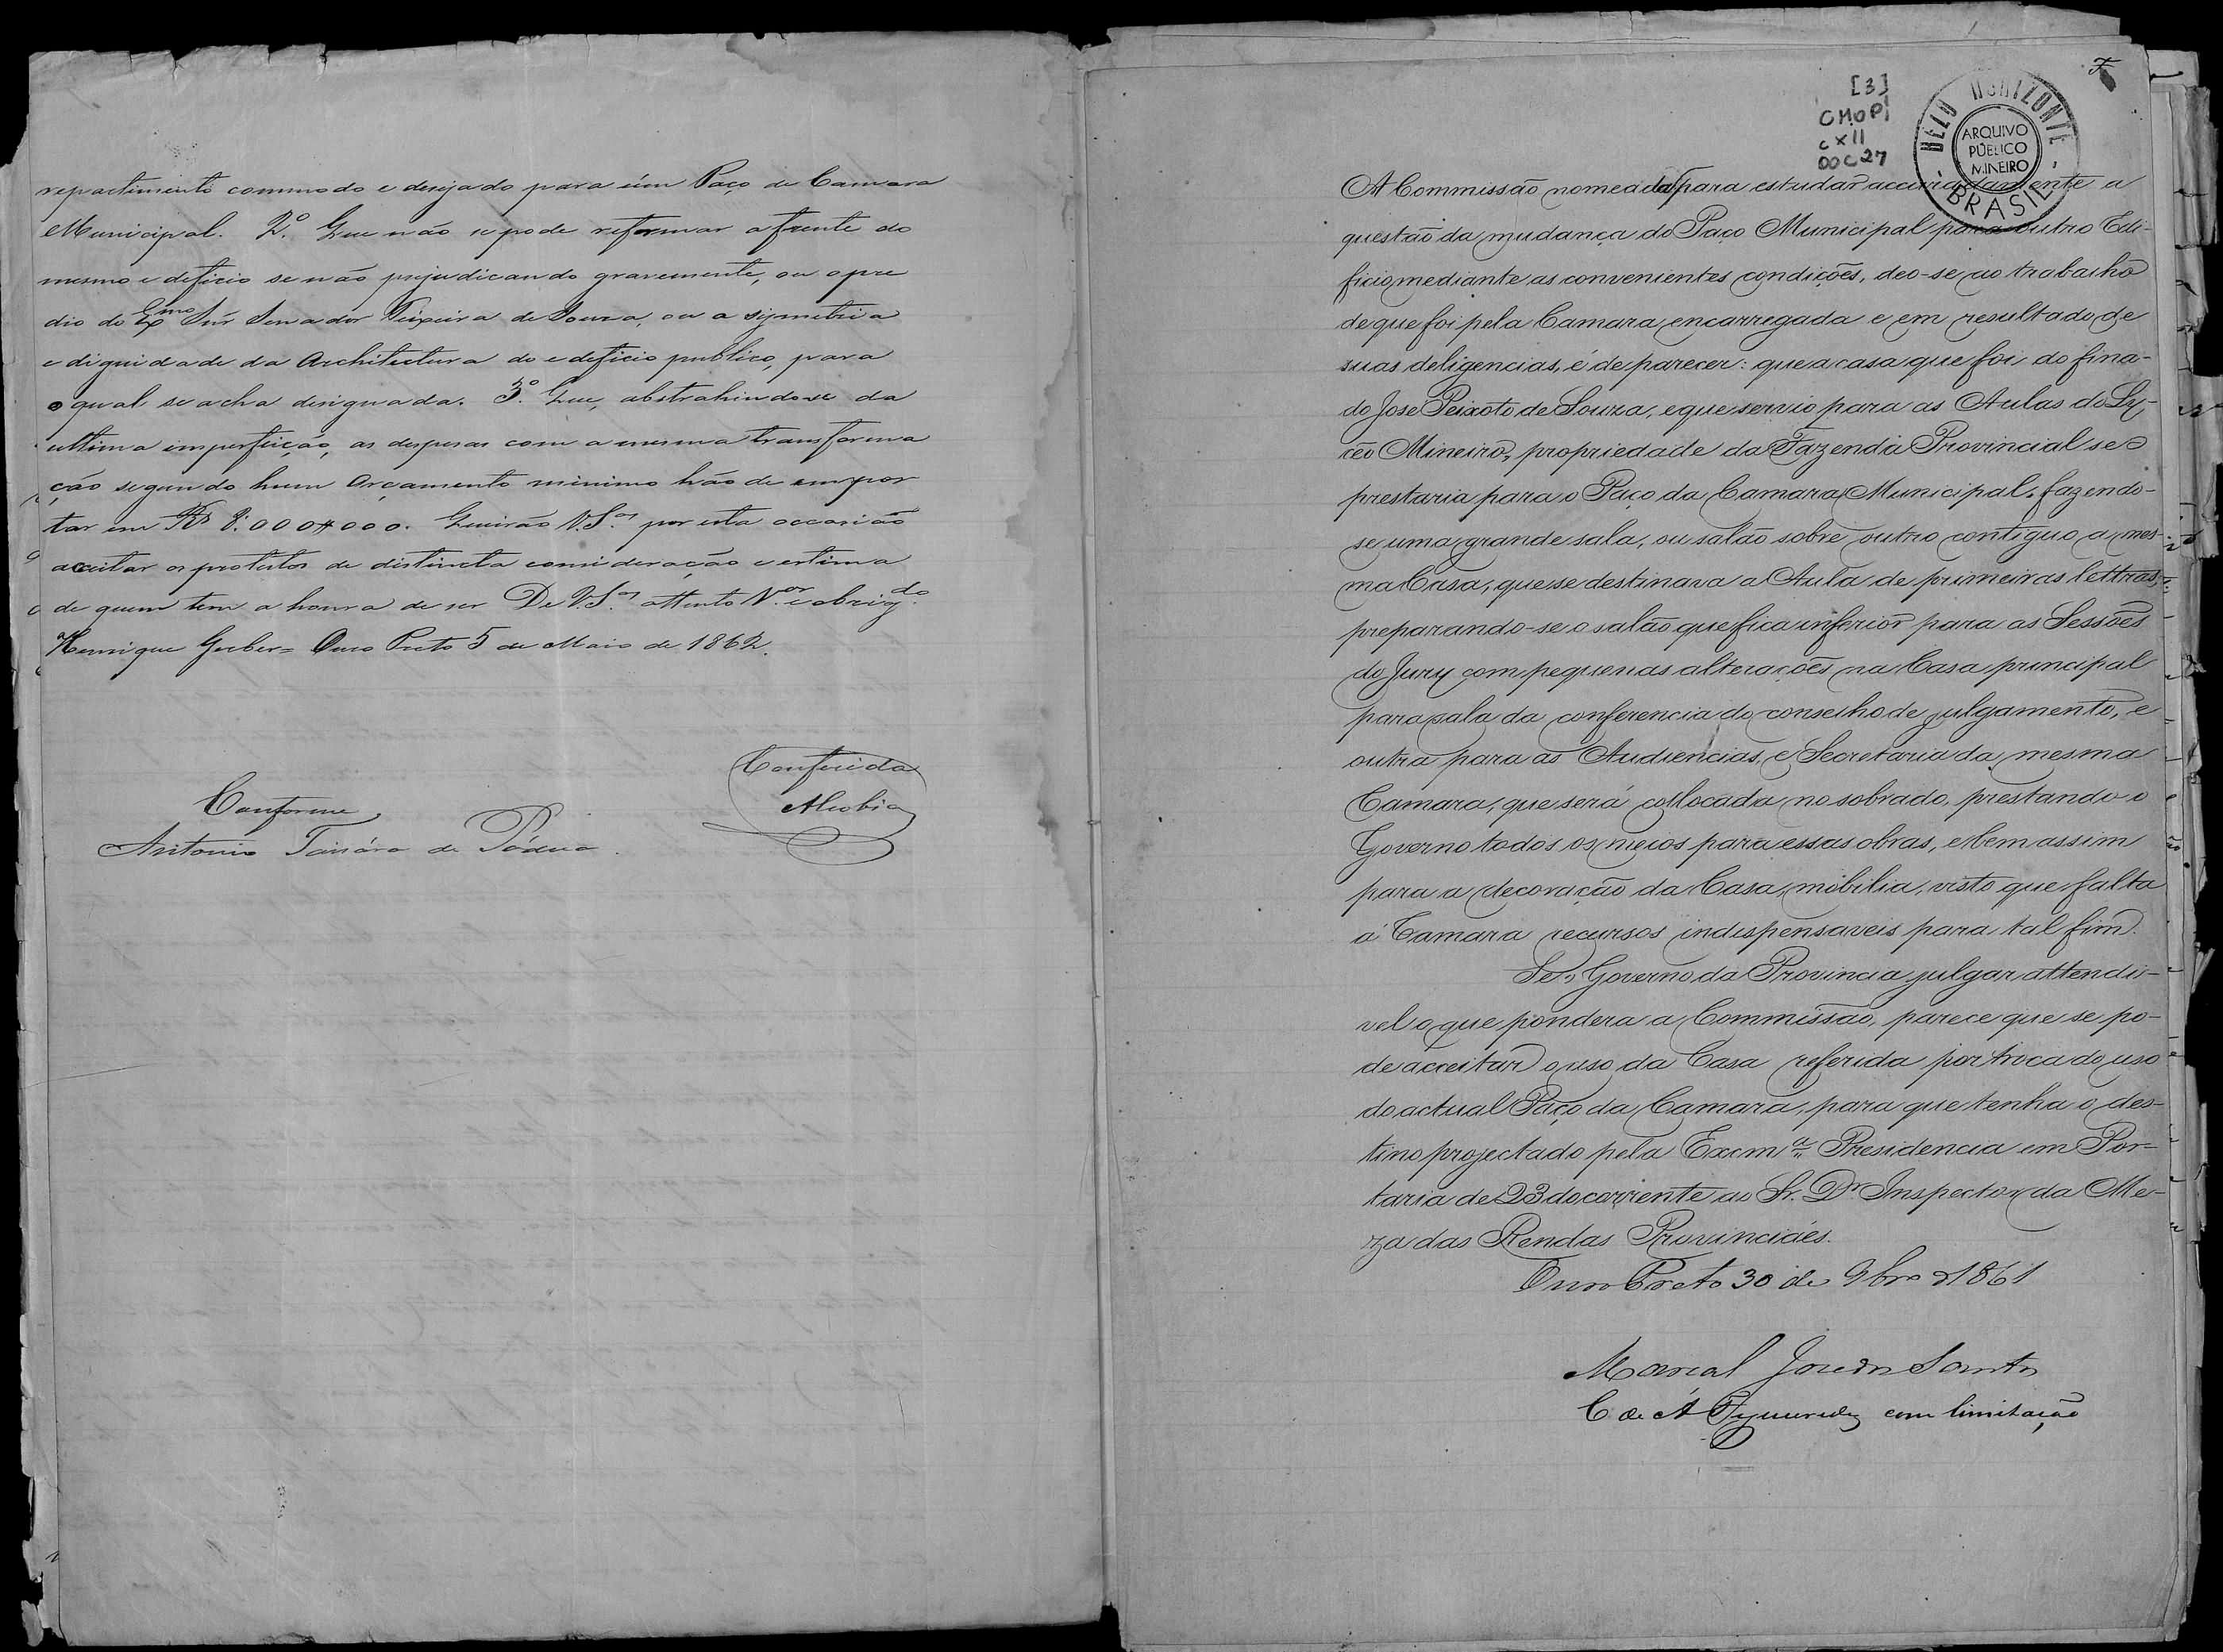 repartimento commodo e desejado para úm Paço de Camara
Municipal. 2.º Que não se pode reformar a frente do
mesmo edeficio se não prejudicando gravemente, ou o pre
dio do Exmo Snr Senador Teixeira de Souza, ou a symetria
e dignidade da Architectura do edeficio publico, para
o qual se acha designada. 3.º Que, abstrahindo-se da
ultima imperfeição, as despesas com a mesma transforma
ção segundo hum Orçamento minimo hão de impor
tar em Rs 8:000#000. Queirão V.S.as por esta occasião
acceitar os protestos de distincta consideração e estima
de quem tem a honra de ser De V.S.as attento V.or e obrig.do
Henrique Gerber= Ouro Preto 5 de Maio de 1862.
Conferida
Conforme
Antonio de Pádua
[3]
CMOP
cx 11
DOC 27
BELO HORIZONTE
ARQUIVO
PÚBLICO
MINEIRO
BRASIL
A Commissão nomeada para estudar accuradamente a
questão da mudança do Paço Municipal para outro Edi-
ficio, mediante as convenientes condições, deo-se ao trabalho
de que foi pela Camara encarregada e em resultado de
suas deligencias, é de parecer: que a casa que foi do fina-
do José Peixoto de Souza, e que servio para as Aulas do Ly-
ceo Mineiro, propriedade da Fazenda Provincial se
prestaria para o Paço da Camara Municipal, fazendo-
se uma grande sala, ou salão sobre outro contiguo a mes-
ma Casa, que se destinava a Aula de primeiras lettras,
preparando-se o salão que fica inferior para as Sessões
do Jury com pequenas alterações na Casa principal
para sala da conferencia do conselho de julgamento, e
outra para as Audiencias, e Secretaria da mesma
Camara, que será collocada no sobrado, prestando o
Governo todos os meios para essas obras, e bem assim
para a decoração da Casa, mobilia, visto que falta
á Camara recursos indispensaveis para tal fim.
Se o Governo da Provincia julgar attendi-
vel o que pondera a Commissão, parece que se po-
de acceitar o uso da Casa referida por troca do uso
do actual Paço da Camara, para que tenha o des-
tino projectado pela Excm.a Presidencia em Por-
taria de 23 do corrente ao Sr. Dr Inspector da Me-
za das Rendas Provinciáes.
Ouro Preto 30 de 9bro d 1861
Marçal José dos Santos
C de A com limitação